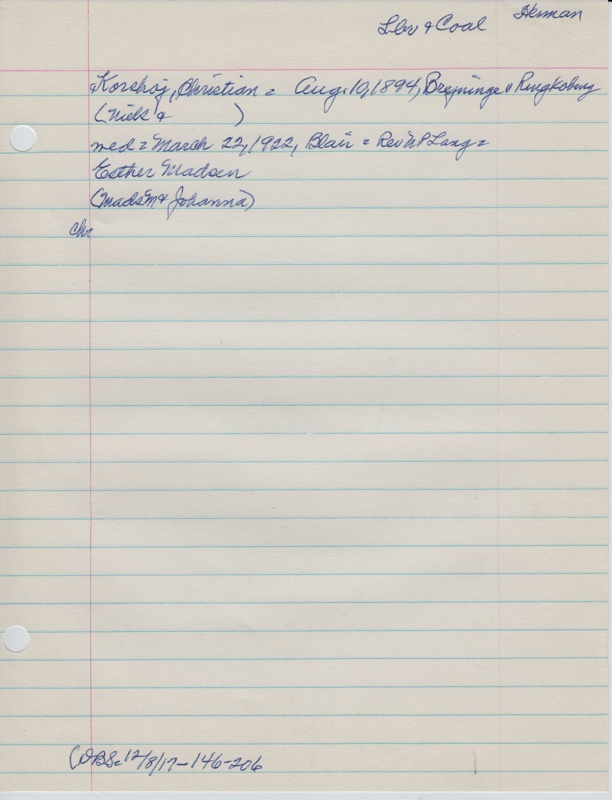 Lbr & Coal Herman
Korshoj, Christian = Aug. 10, 1894, Brejninge, Ringkobing
(Niels & )
med = March 22, 1922, Blair = Rev N P Lang =
Esther Madsen
(Mads M & Johanna)
chr
(DBS = 12/8/17-146-206